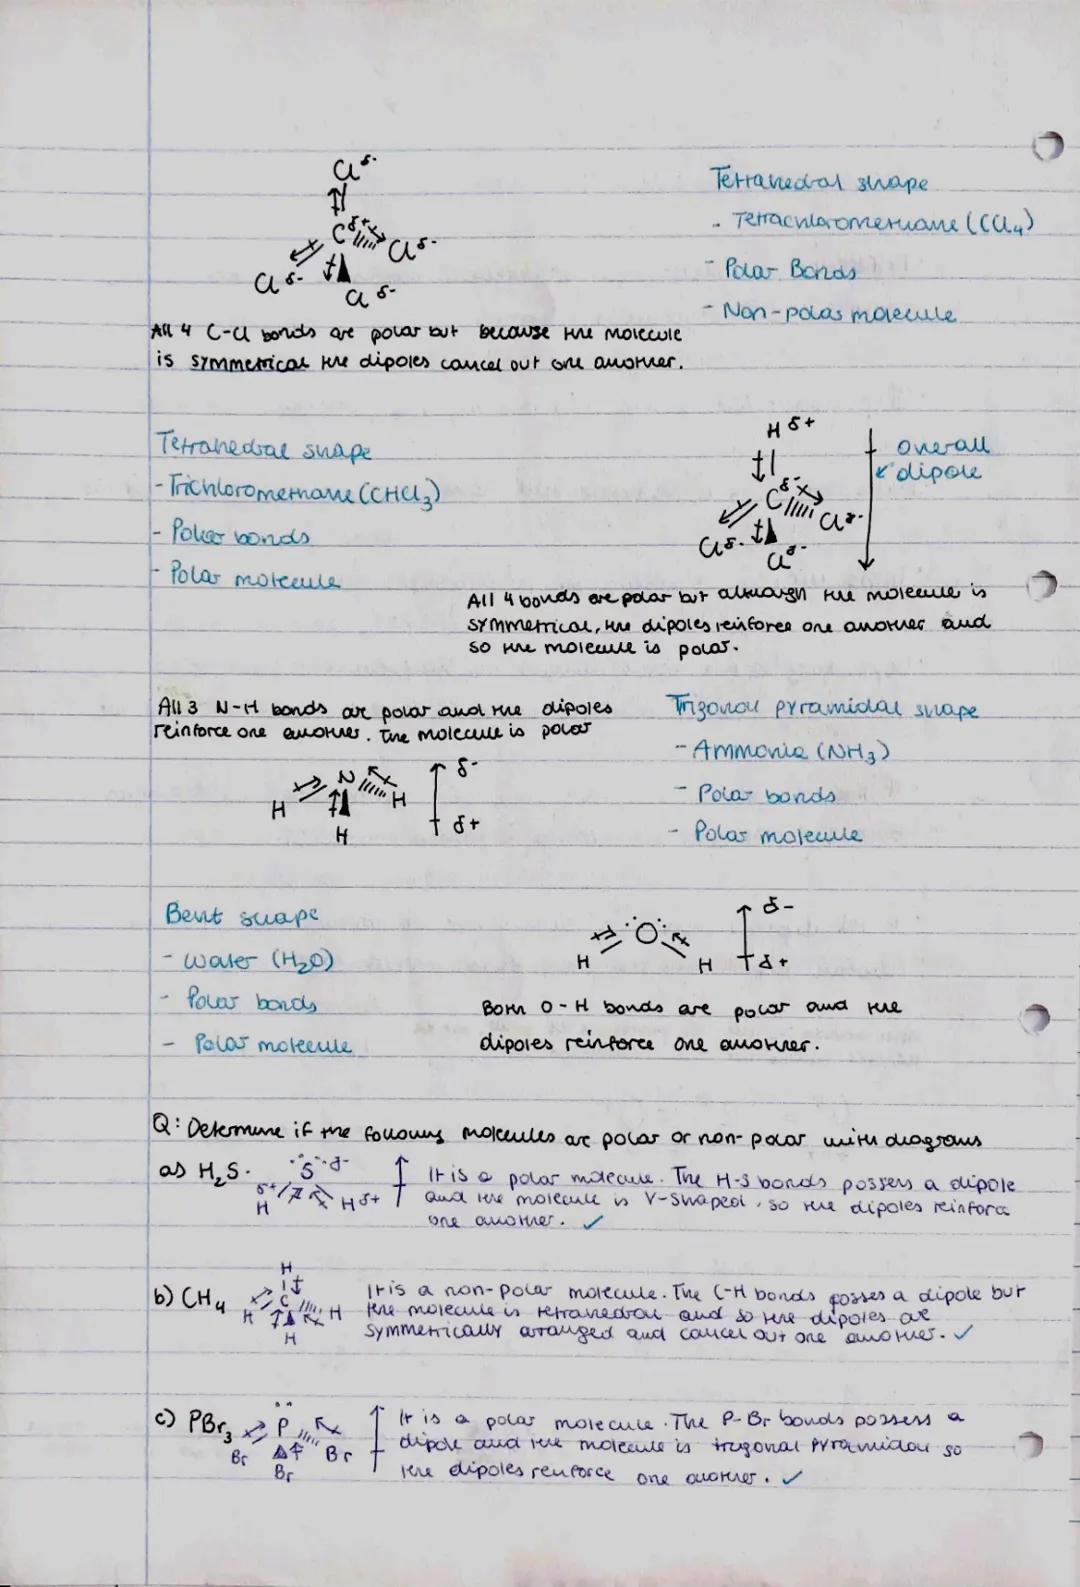 Clδ-
Cδ+ Clδ-
Clδ- Clδ-
All 4 C-Cl bonds are polar but because the molecule
is symmetrical the dipoles cancel out one another.
Tetrahedral shape
- Tetrachloromethane (CCl₄)
- Polar Bonds
- Non-polar molecule
Tetrahedral shape
- Trichloromethane (CHCl₃)
- Polar bonds
- Polar molecule
H δ+
Cδ- Clδ-
Clδ- Clδ-
overall
dipole
All 4 bonds are polar but although the molecule is
symmetrical, the dipoles reinforce one another and
so the molecule is polar.
All 3 N-H bonds are polar and the dipoles
reinforce one another. The molecule is polar
N
H H
H
δ-
δ+
Trigonal pyramidal shape
- Ammonia (NH₃)
- Polar bonds
- Polar molecule
Bent shape
- Water (H₂O)
- Polar bonds
- Polar molecule
O
H H
δ-
δ+
Both O-H bonds are polar and the
dipoles reinforce one another.
Q: Determine if the following molecules are polar or non-polar with diagrams
a) H₂S.
S δ-
δ+ H H δ+
It is a polar molecule. The H-S bonds possess a dipole
and the molecule is V-shaped, so the dipoles reinforce
one another. ✓
b) CH₄
H
C
H H
H
It is a non-polar molecule. The C-H bonds posses a dipole but
the molecule is tetrahedral and so the dipoles are
symmetrically arranged and cancel out one another. ✓
c) PBr₃
P
Br Br
Br
It is a polar molecule. The P-Br bonds possess a
dipole and the molecule is trigonal pyramidal so
the dipoles reinforce one another. ✓